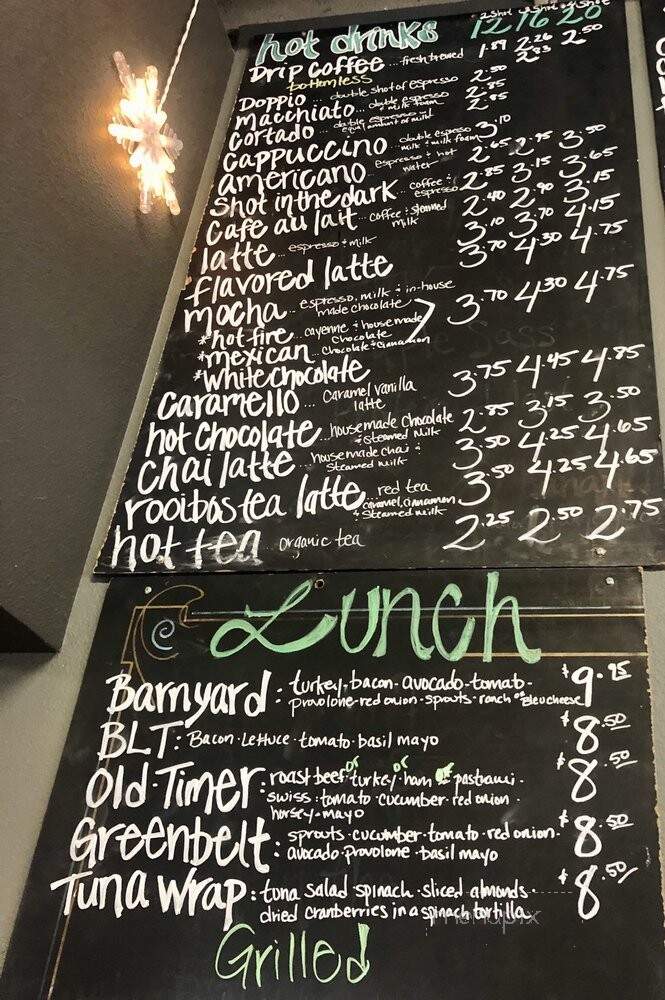 2 shot
hot drinks 12 16 20
Drip Coffee ... fresh brewed 1.89 2.26 2.50
bottomless 2.83
Doppio ... double shot of espresso 2.50
macchiato ... double espresso + milk foam 2.85
Cortado ... double espresso equal amount of milk 2.85
Cappuccino double espresso milk + milk foam 3.10
americano espresso + hot water 2.65 2.95 3.50
Shot in the dark coffee + espresso 2.85 3.15 3.65
Cafe au lait ... coffee + steamed milk 2.40 2.90 3.15
latte ... espresso + milk 3.10 3.70 4.15
flavored latte 3.70 4.30 4.75
mocha ... espresso, milk + in-house made chocolate 3.70 4.30 4.75
*hot fire ... cayenne + house made chocolate
*mexican ... chocolate + cinnamon
*white chocolate
Caramello ... Caramel vanilla latte 3.75 4.45 4.85
hot Chocolate ... house made chocolate + steamed milk 2.85 3.15 3.50
Chai latte ... house made chai + steamed milk 3.50 4.25 4.65
rooibos tea latte ... red tea caramel, cinnamon + steamed milk 3.50 4.25 4.65
hot tea organic tea 2.25 2.50 2.75
Lunch
Barnyard: turkey · bacon · avocado · tomato · $9.95
provolone · red onion · sprouts · ranch or Bleu cheese
BLT: Bacon · Lettuce · tomato · basil mayo $8.50
Old · Timer: roast beef or turkey · or ham or pastrami · $8.50
swiss · tomato · cucumber · red onion ·
horsey · mayo
Greenbelt: sprouts · cucumber · tomato · red onion · $8.50
avocado · provolone · basil mayo
Tuna Wrap: tuna salad spinach · sliced almonds · $8.50
dried cranberries in a spinach tortilla
menupix
Grilled